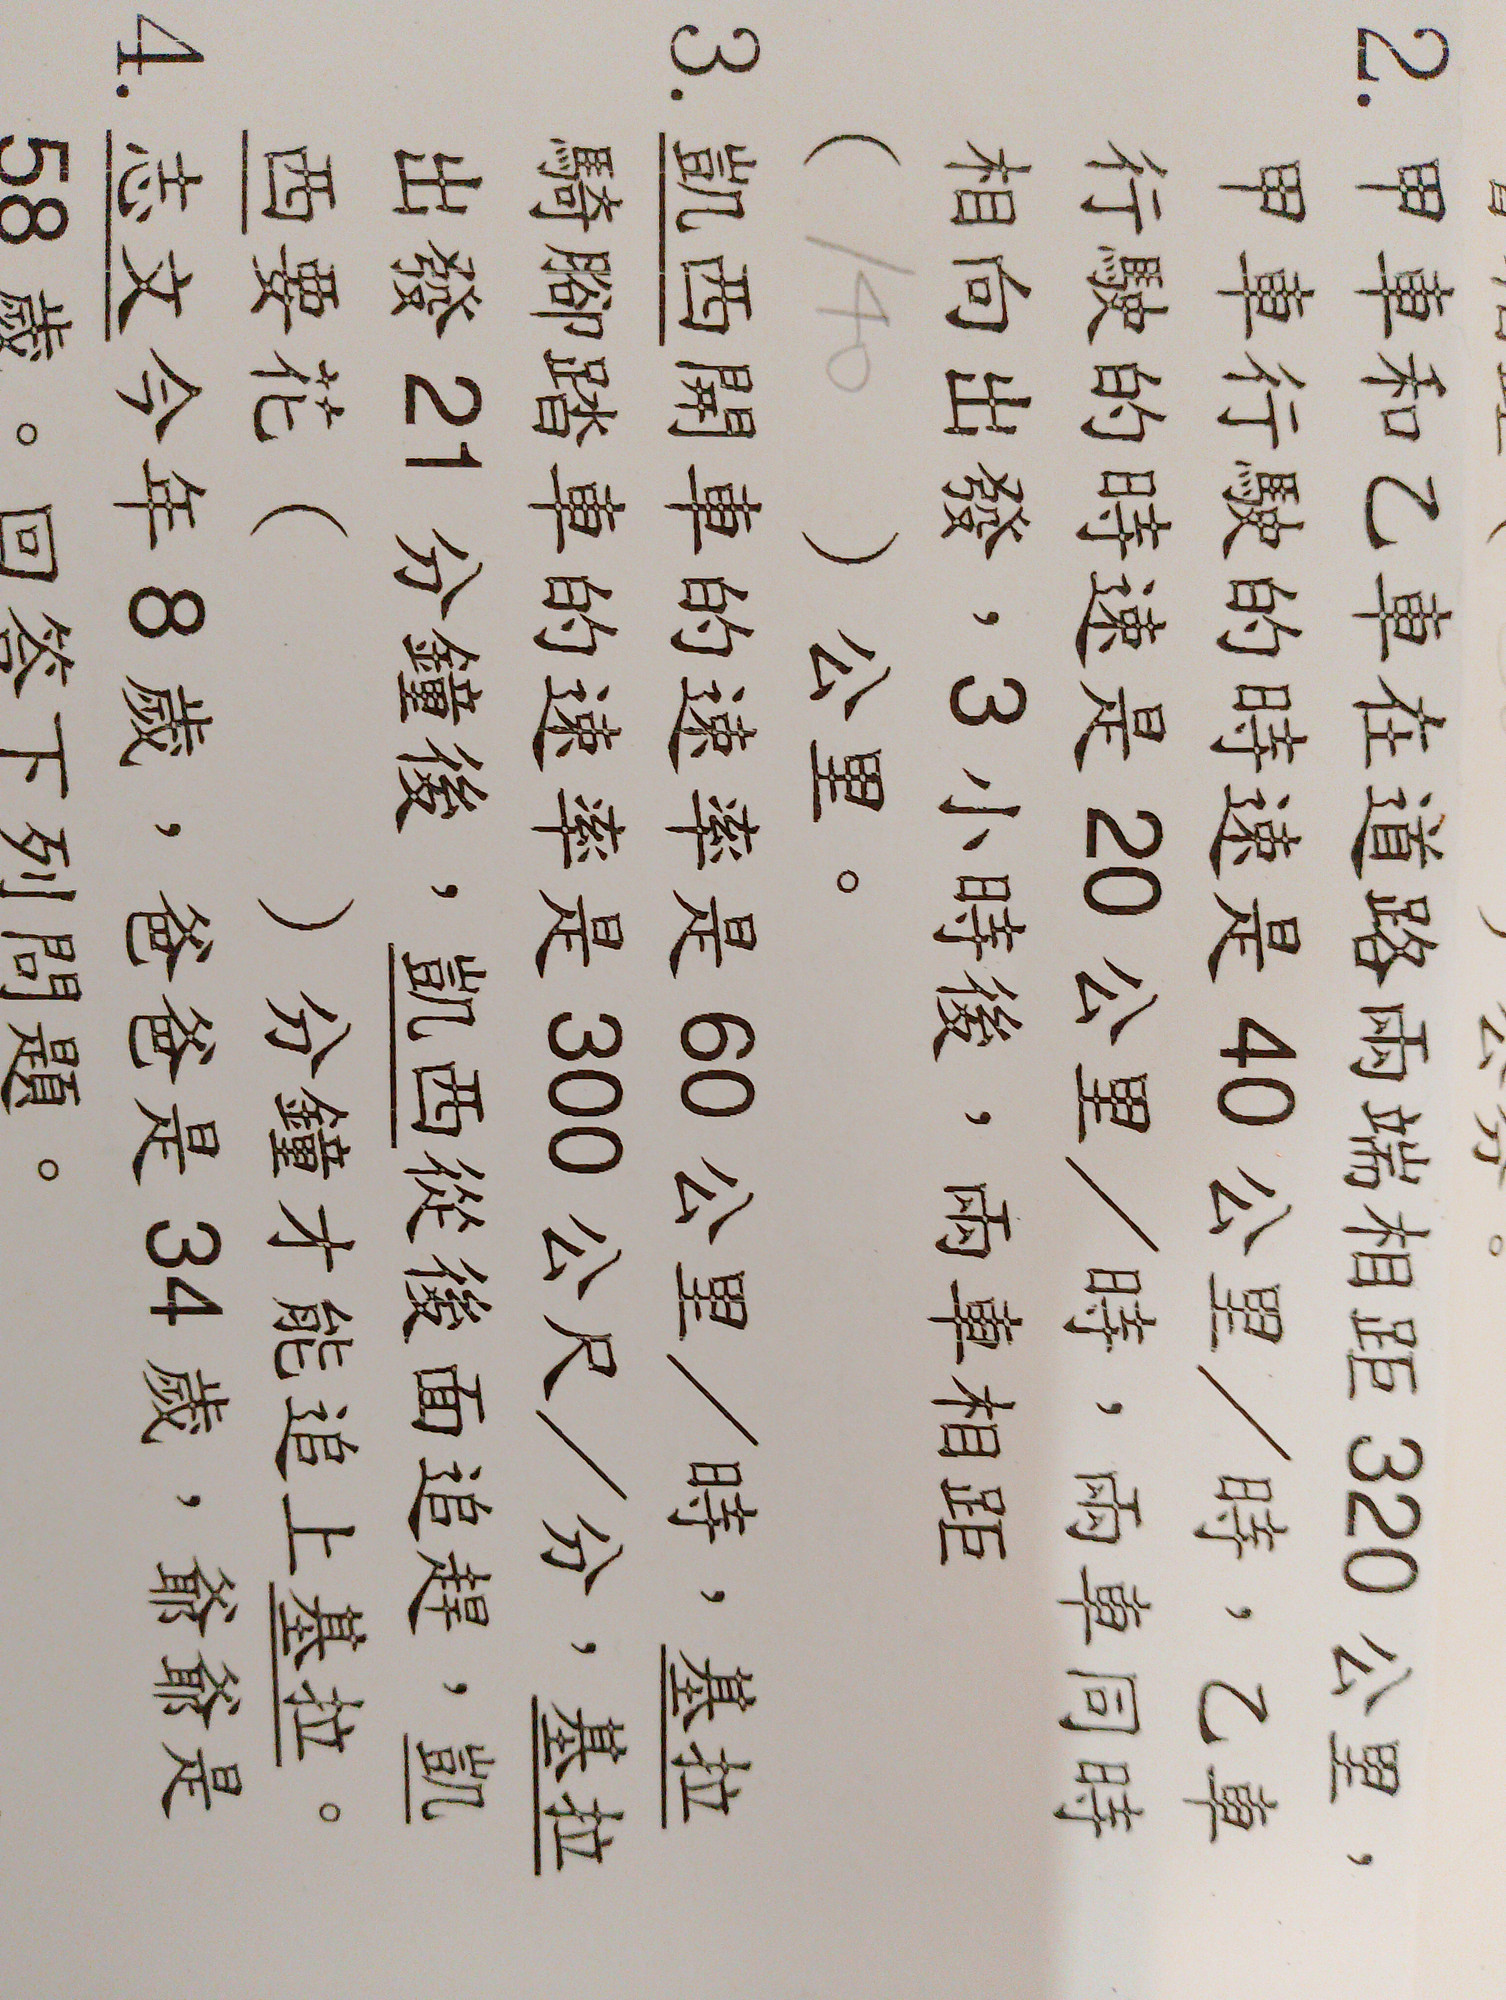 2. 甲車和乙車在道路兩端相距 320 公里，
甲車行駛的時速是 40 公里／時，乙車
行駛的時速是 20 公里／時，兩車同時
相向出發，3 小時後，兩車相距
（ 140 ）公里。
3. 凱西開車的速率是 60 公里／時，基拉
騎腳踏車的速率是 300 公尺／分，基拉
出發 21 分鐘後，凱西從後面追趕，凱
西要花（ ）分鐘才能追上基拉。
4. 志文今年 8 歲，爸爸是 34 歲，爺爺是
58 歲。回答下列問題。